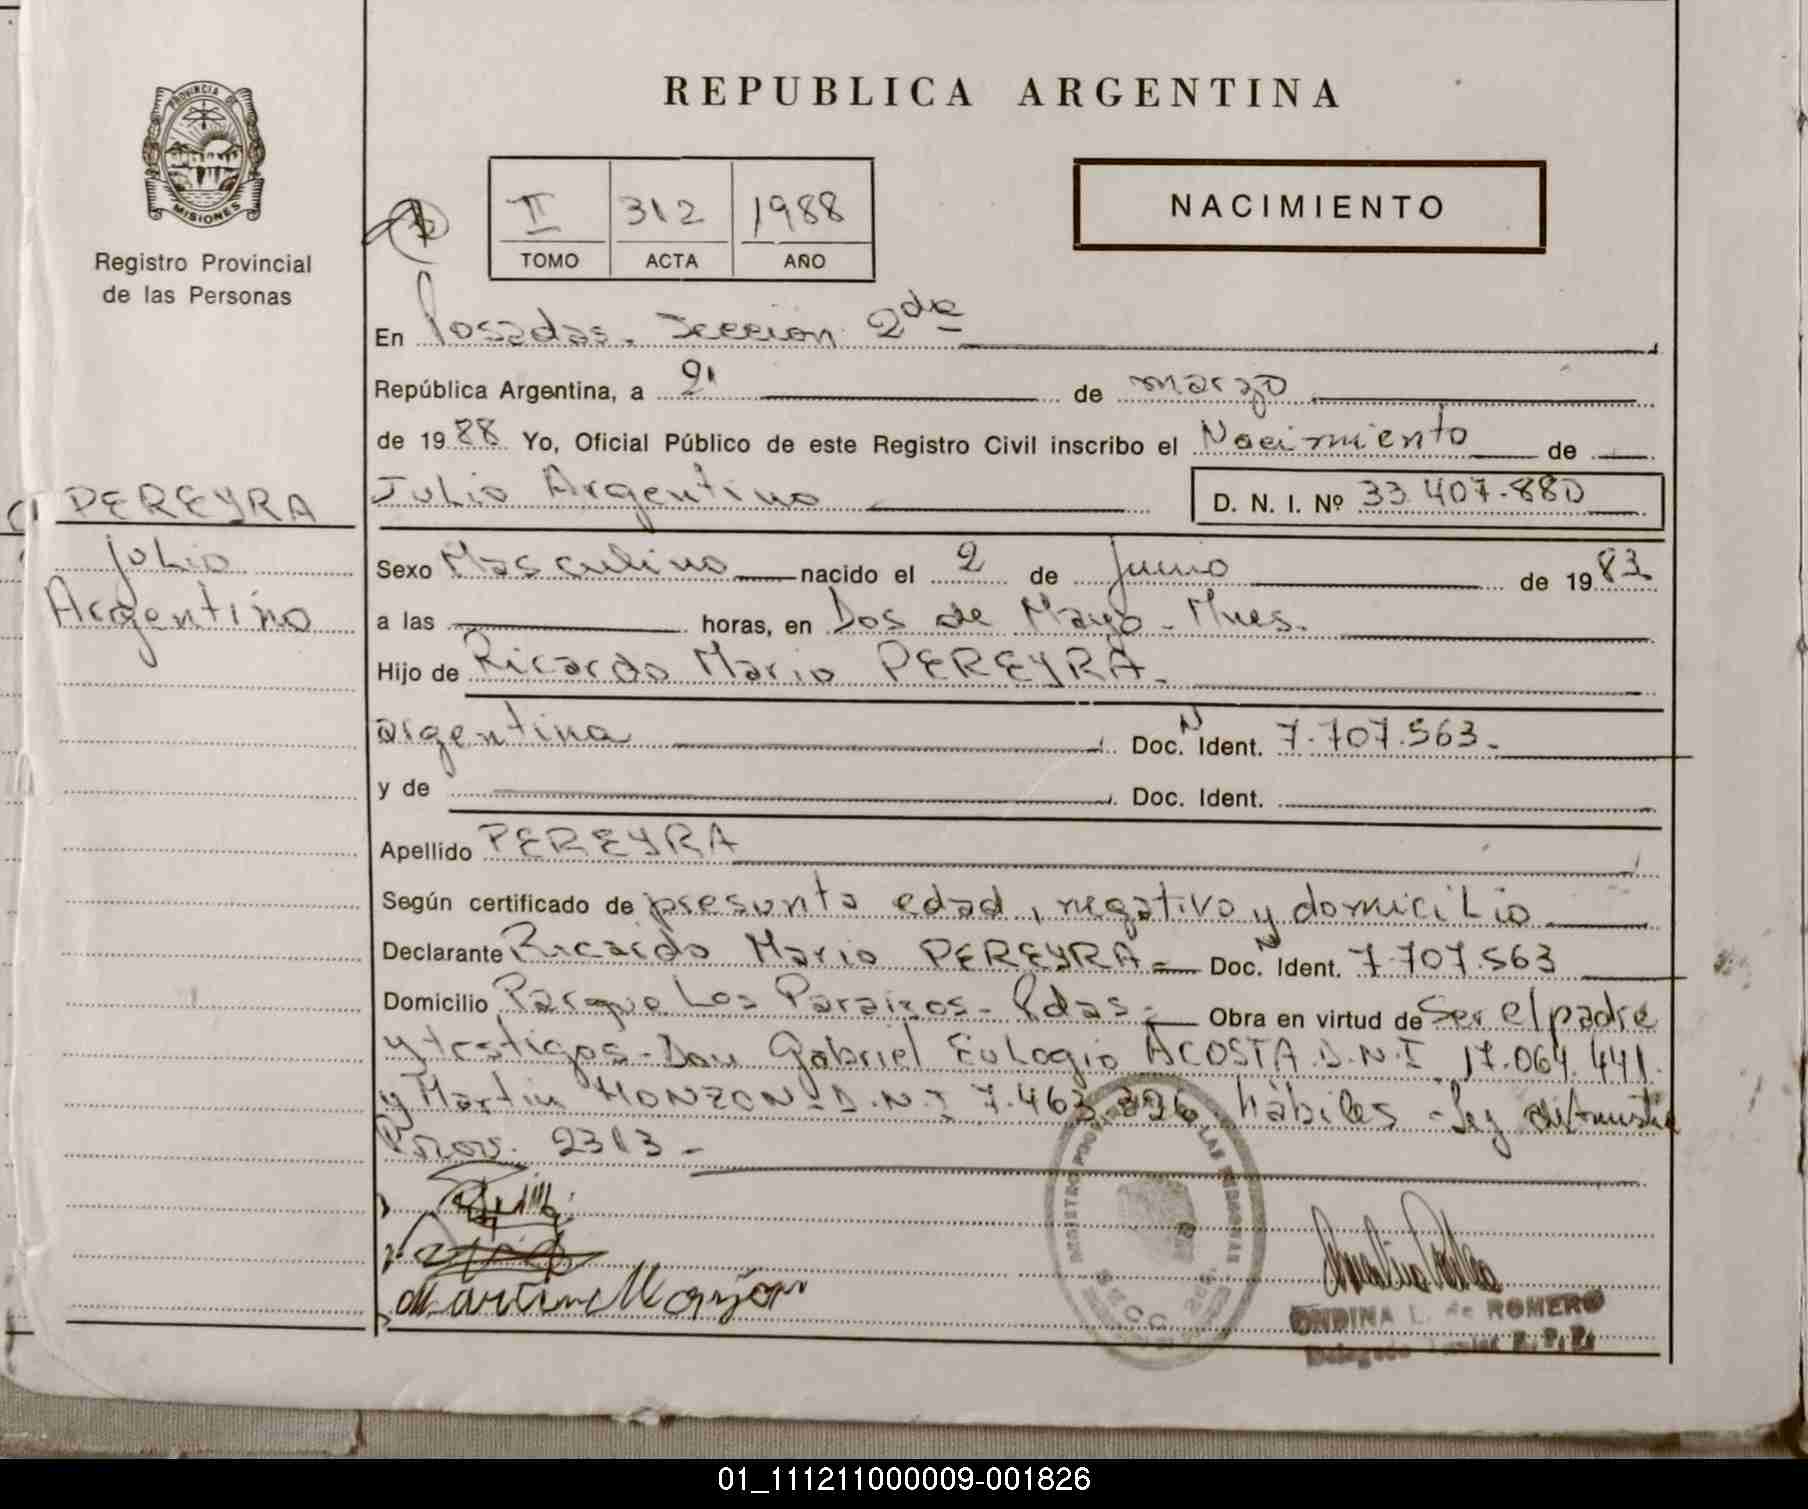 REPUBLICA ARGENTINA
PROVINCIA DE
MISIONES
Registro Provincial
de las Personas
II 312 1988
TOMO ACTA AÑO
NACIMIENTO
En Posadas. Sección 2da
República Argentina, a 21 de marzo
de 1988 Yo, Oficial Público de este Registro Civil inscribo el Nacimiento de
PEREYRA
Julio
Argentino
Julio Argentino D. N. I. Nº 33.407.880
Sexo Masculino nacido el 2 de Junio de 1983
a las horas, en Dos de Mayo - Mnes.
Hijo de Ricardo Mario PEREYRA.
argentina Doc. N Ident. 7.707.563.
y de Doc. Ident.
Apellido PEREYRA
Según certificado de presunta edad, negativo y domicilio
Declarante Ricardo Mario PEREYRA - Doc. N Ident. 7.707.563
Domicilio Parque Los Paraizos - Pdas. Obra en virtud de Ser el padre
y testigos - Don Gabriel Eulogio ACOSTA D.N.I 17.064.441.
y Martin MONZON - D.N.I 7.463.326. hábiles - Ley de Amnistia
Prov. 2313 -
Martin Monzon
LAS PERSONAS
ONDINA L. de ROMERO
01_111211000009-001826